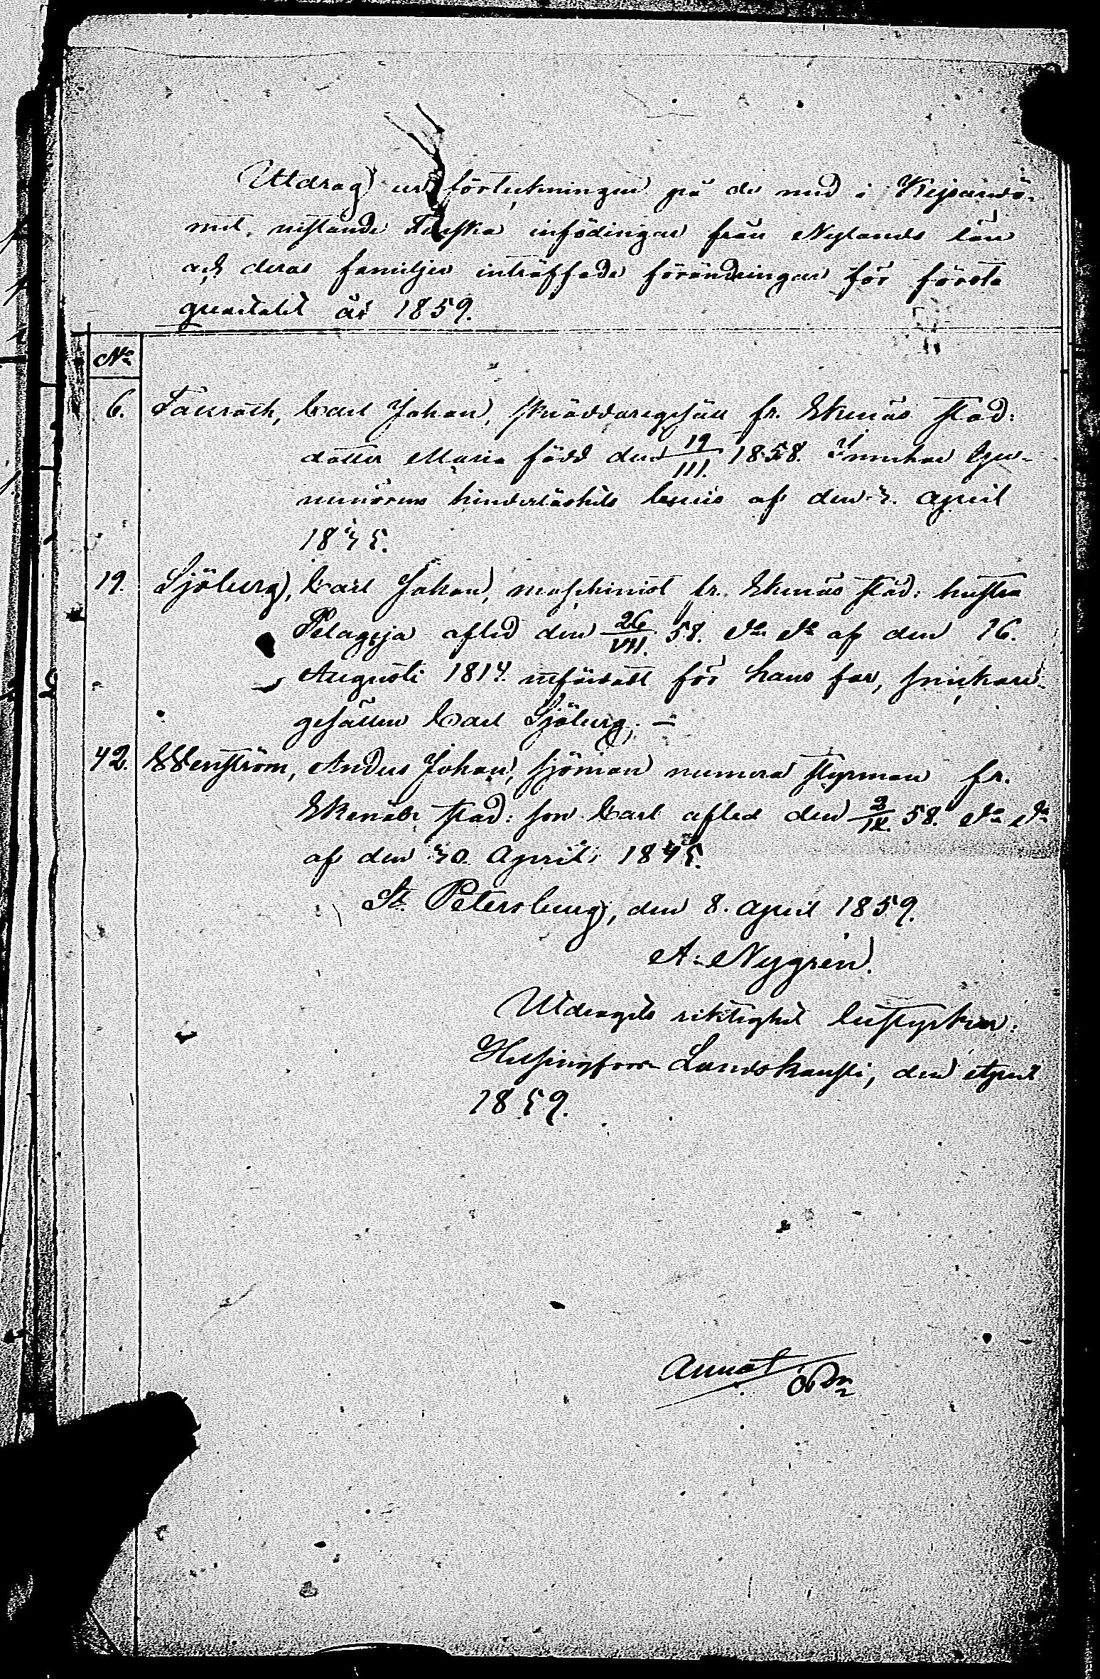 Utdrag ur förteckningen på de med i Kejsaredö-
met vistande Finska infödingar från Nylands län
och deras familjer inträffade förändringar för första
quartalet år 1859.
No
6. Carl Johan, skräddaregesäll fr. Ekenäs stad:
dotter Maria född den 19/III. 1858. Innehar Guv-
minörens hinderlöshets bevis af den 7. April
19. Sjöberg, Carl Johan, maschinist fr. Ekenäs stad: hustru
Pelageja afled den 26/VII. 58. do do af den 16.
Augusti 1817. utfärdatt för hans far, snickare-
gesällen Carl Sjöberg. –
42. Wenström, Anders Johan, sjöman numera styrman fr.
Ekenäs stad: son Carl afled den 58. do do
af den 30. April 1845.
St. Petersburg, den 8. April 1859.
A. Nygrén.
Utdragets riktighet bestyrker:
Helsingfors Landskansli, den April
1859.